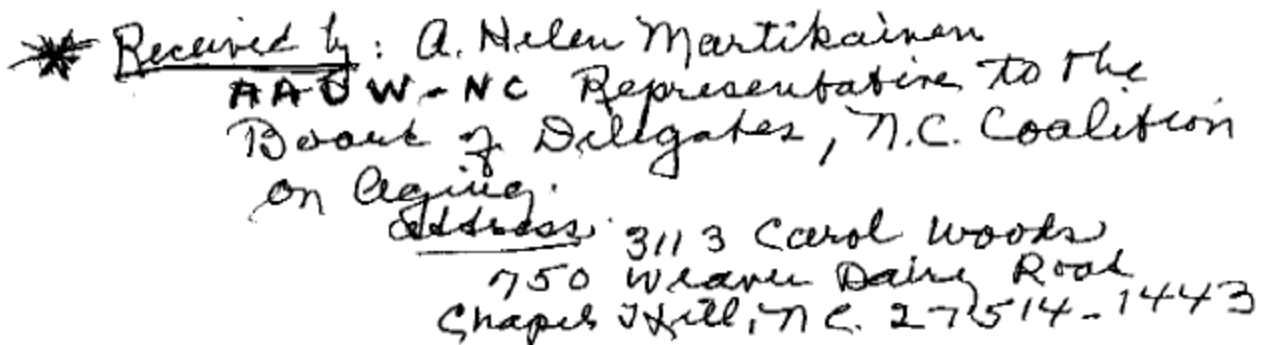 * Received by: A. Helen Martikainen
AAUW-NC Representative to the
Board of Delegates, N.C. Coalition
on Aging.
Address: 3113 Carol Woods
750 Weaver Dairy Road
Chapel Hill, NC. 27514-1443